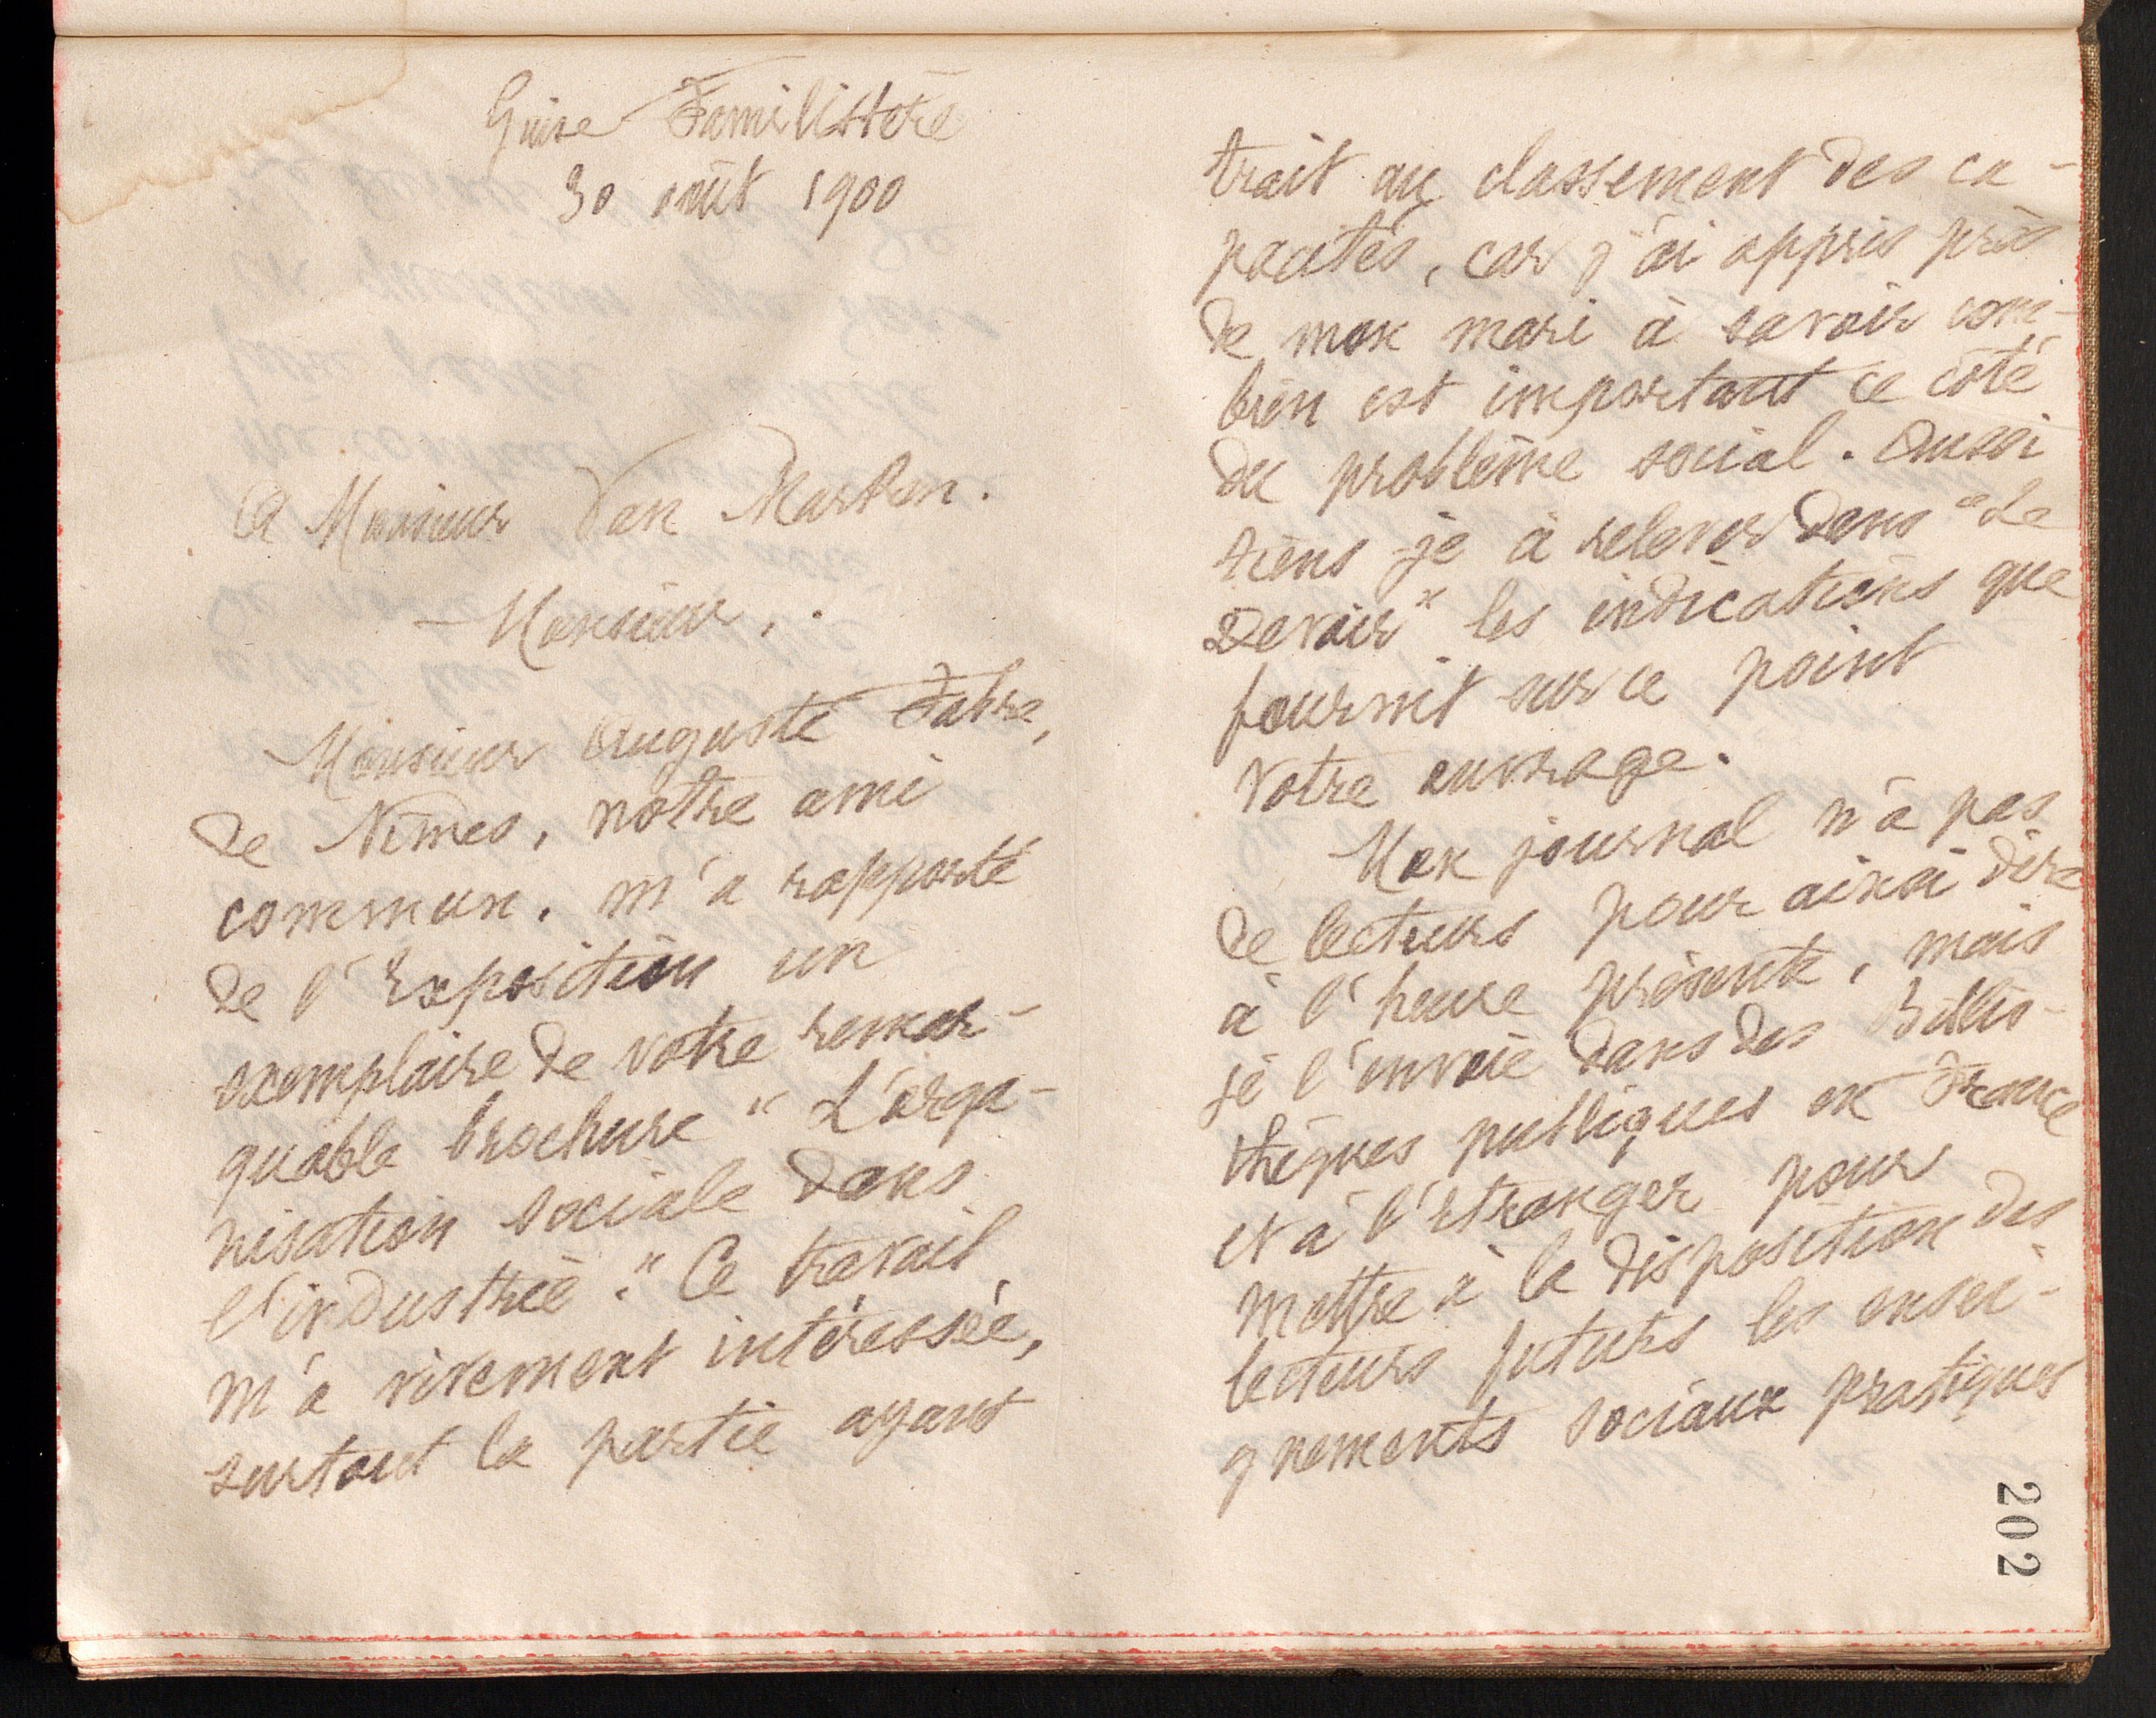 Guise Familistère
30 août 1900
A Monsieur Van Marken.
Monsieur,
Monsieur Auguste Fabre,
de Nîmes, notre ami
commun, m'a rapporté
de l'Exposition un
exemplaire de votre remar-
quable brochure "L'orga-
nisation sociale dans
l'industrie". Ce travail
m'a vivement intéressée,
surtout la partie ayant
trait au classement des ca-
pacités, car j'ai appris près
de mon mari à savoir com-
bien est important ce côté
du problème social. Aussi
tiens-je à relever dans "Le
Devoir" les indications que
fournit sur ce point
votre ouvrage.
Mon journal n'a pas
de lecteurs pour ainsi dire
à l'heure présente, mais
je l'envoie dans des Biblio-
thèques publiques en France
et à l'étranger pour
mettre à la disposition des
lecteurs futurs les ensei-
gnements sociaux pratiques
202